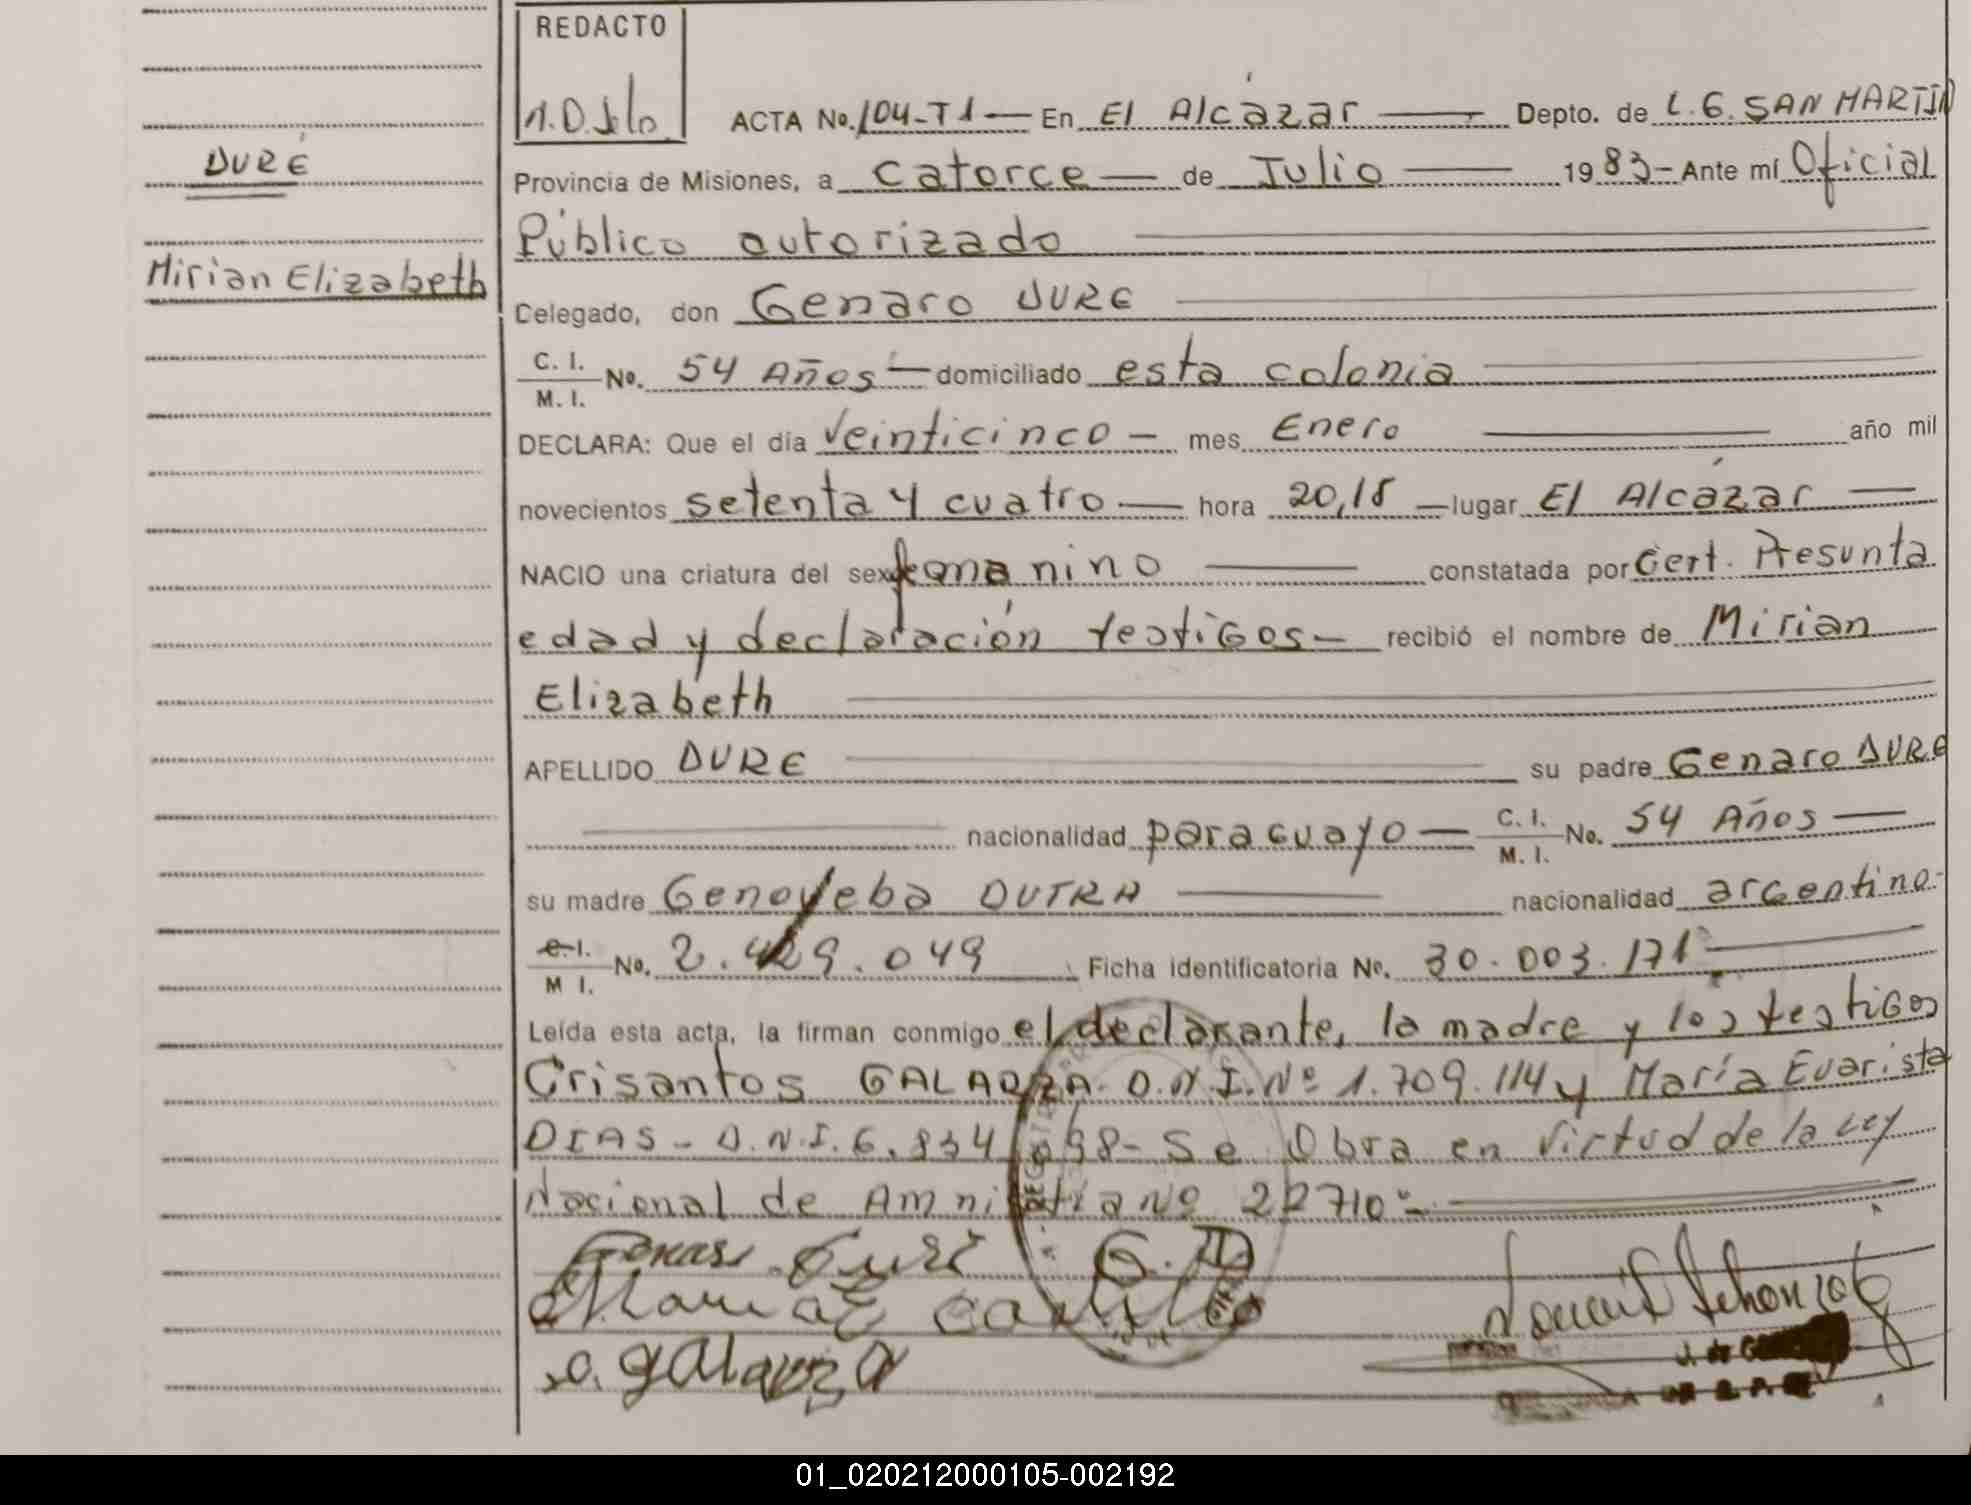 REDACTO
ACTA No. 104-T1 — En El Alcázar — Depto. de L. G. SAN MARTIN
DURÉ
Provincia de Misiones, a Catorce — de Julio — 1983- Ante mí Oficial
Público autorizado
Mirian Elizabeth
Celegado, don Genaro DURE
C. I.
M. I. No. 54 Años — domiciliado esta colonia
DECLARA: Que el día Veinticinco — mes Enero — año mil
novecientos setenta y cuatro — hora 20,15 — lugar El Alcázar —
NACIO una criatura del sexo femenino — constatada por Cert. Presunta
edad y declaración testigos — recibió el nombre de Mirian
Elizabeth
APELLIDO DURE — su padre Genaro DURE
nacionalidad paraguayo — C. I.
M. I. No. 54 Años —
su madre Genoveba DUTRA — nacionalidad argentino-
C. I.
M I. No. 2.429.049 Ficha identificatoria No. 30.003.171
Leída esta acta, la firman conmigo el declarante, la madre y los testigos
Crisantos GALARZA. D.N.I. Nº 1.709.114 y María Evarista
DIAS - D.N.I. 6.834.098- Se Obra en Virtud de la Ley
Nacional de Amnistia Nº 22710
G. D
galarza
01_020212000105-002192